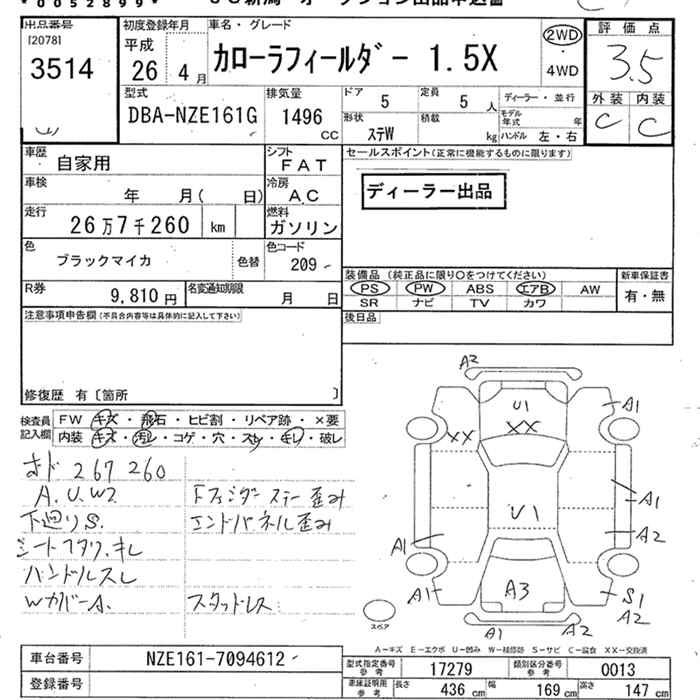 *0052899*
JU新潟 オークション出品申込書
出品番号 初度登録年月 車名・グレード 評価点
[2078]
3514
平成 26 4月
カローラフィールダー 1.5X
2WD
・
4WD
3.5
型式 排気量 ドア 定員 ディーラー・並行 外装 内装
DBA-NZE161G 1496 CC 5 5 人 モデル年式 年 C C
形状 ステW 積載 kg ハンドル 左・右
車歴 自家用 シフト FAT セールスポイント(正常に機能するものに限ります)
車検 年 月( 日) 冷房 AC ディーラー出品
走行 26万7千260 km 燃料 ガソリン
色 ブラックマイカ 色替 色コード 209
装備品(純正品に限り○をつけてください) 新車保証書
R券 9,810円 名変通知期限 月 日 PS PW ABS エアB AW 有・無
SR ナビ TV カワ
注意事項申告欄(不具合内容等は具体的に記入して下さい) 後日品
修復歴 有〔箇所 〕
検査員記入欄 FW キズ・飛石・ヒビ割・リペア跡・×要
内装 キズ・汚レ・コゲ・穴・スレ・キレ・破レ
オド 267260
A.U.W2 Fフェンダーステー歪み
下廻りS. エンドパネル歪み
シートヘタリ、キレ
ハンドルスレ
WカバーA. スタッドレス
A2
U1 A1
XX XX
A1
U1
A1 A2
A3
A1 S1
A2
A1 A2
スペア
A-キズ E-エクボ U-凹み W-補修跡 S-サビ C-腐食 XX-交換済
車台番号 NZE161-7094612 型式指定番号 参考 17279 類別区分番号 参考 0013
登録番号 車庫証明用 参考 長さ 436 cm 幅 169 cm 高さ 147 cm